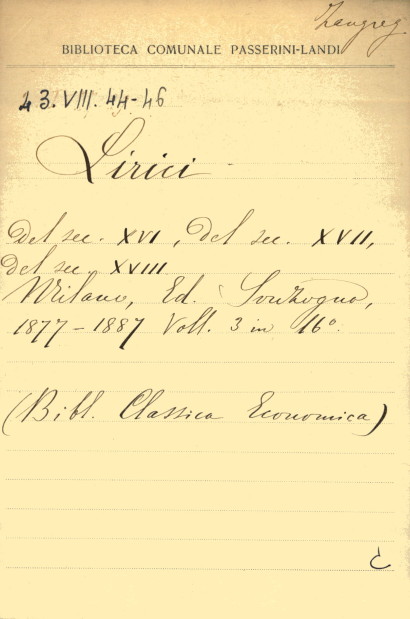 BIBLIOTECA COMUNALE PASSERINI-LANDI
23.VIII.44-46
Lirici
Del sec. XVI, Del sec. XVII,
Del sec. XVIII
Milano, Ed. Sonzogno,
1877-1887 Voll. 3 in 16°.
(Bibl. Classica Economica)